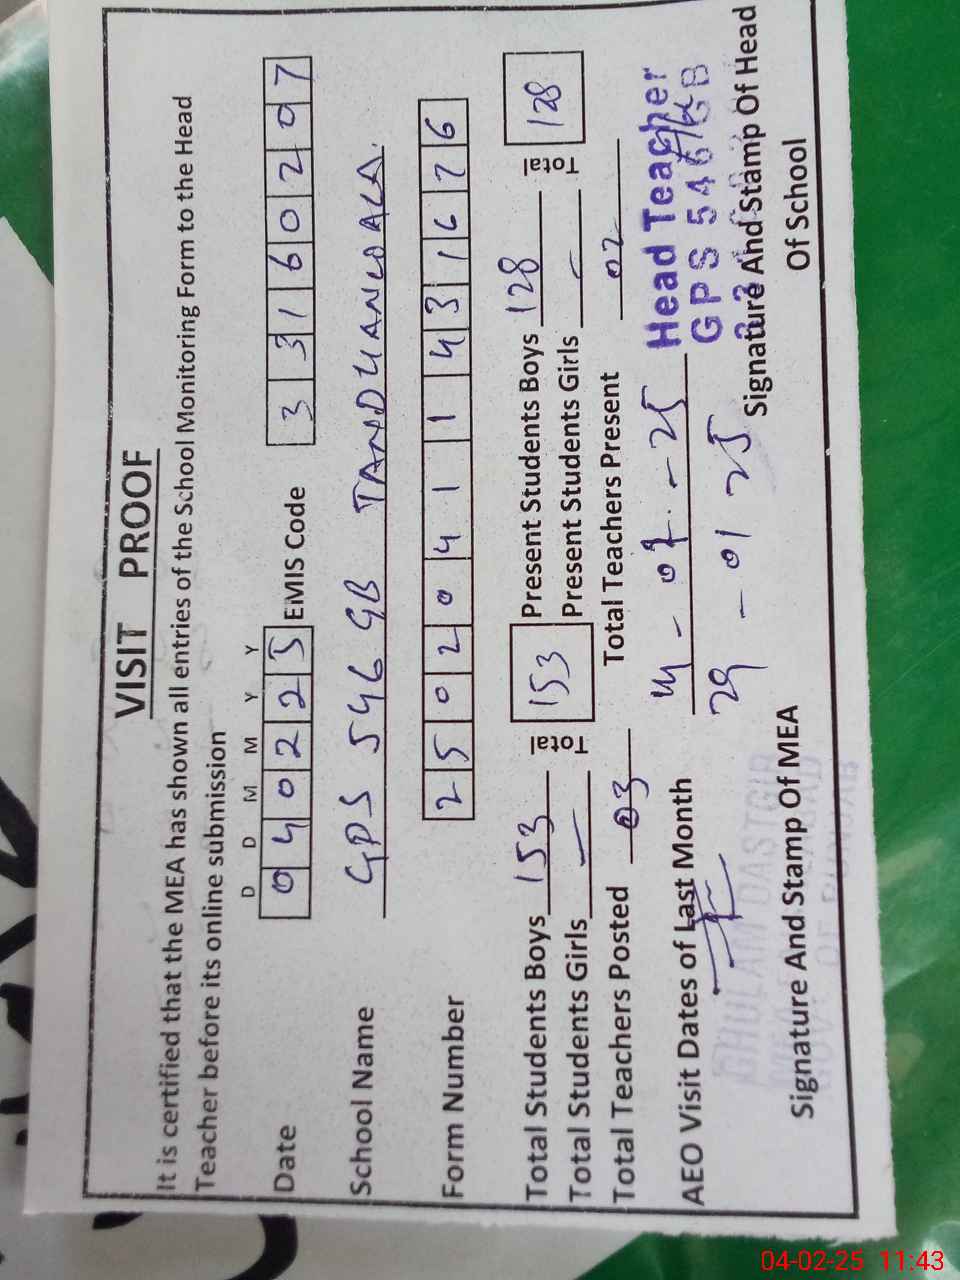 VISIT PROOF
It is certified that the MEA has shown all entries of the School Monitoring Form to the Head
Teacher before its online submission
D D M M Y Y
Date 040225 EMIS Code 33160207
School Name GPS 546 GB TANDLIANWALA
Form Number 25020411431626
Total Students Boys 153 Total 153 Present Students Boys 128 Total 128
Total Students Girls — Present Students Girls —
Total Teachers Posted 03 Total Teachers Present 02
AEO Visit Dates of Last Month 14-01-25
29-01 25
Head Teacher
GPS 546 GB
GHULAM DASTGIR
Signature And Stamp Of MEA
Signature And Stamp Of Head
Of School
04-02-25 11:43